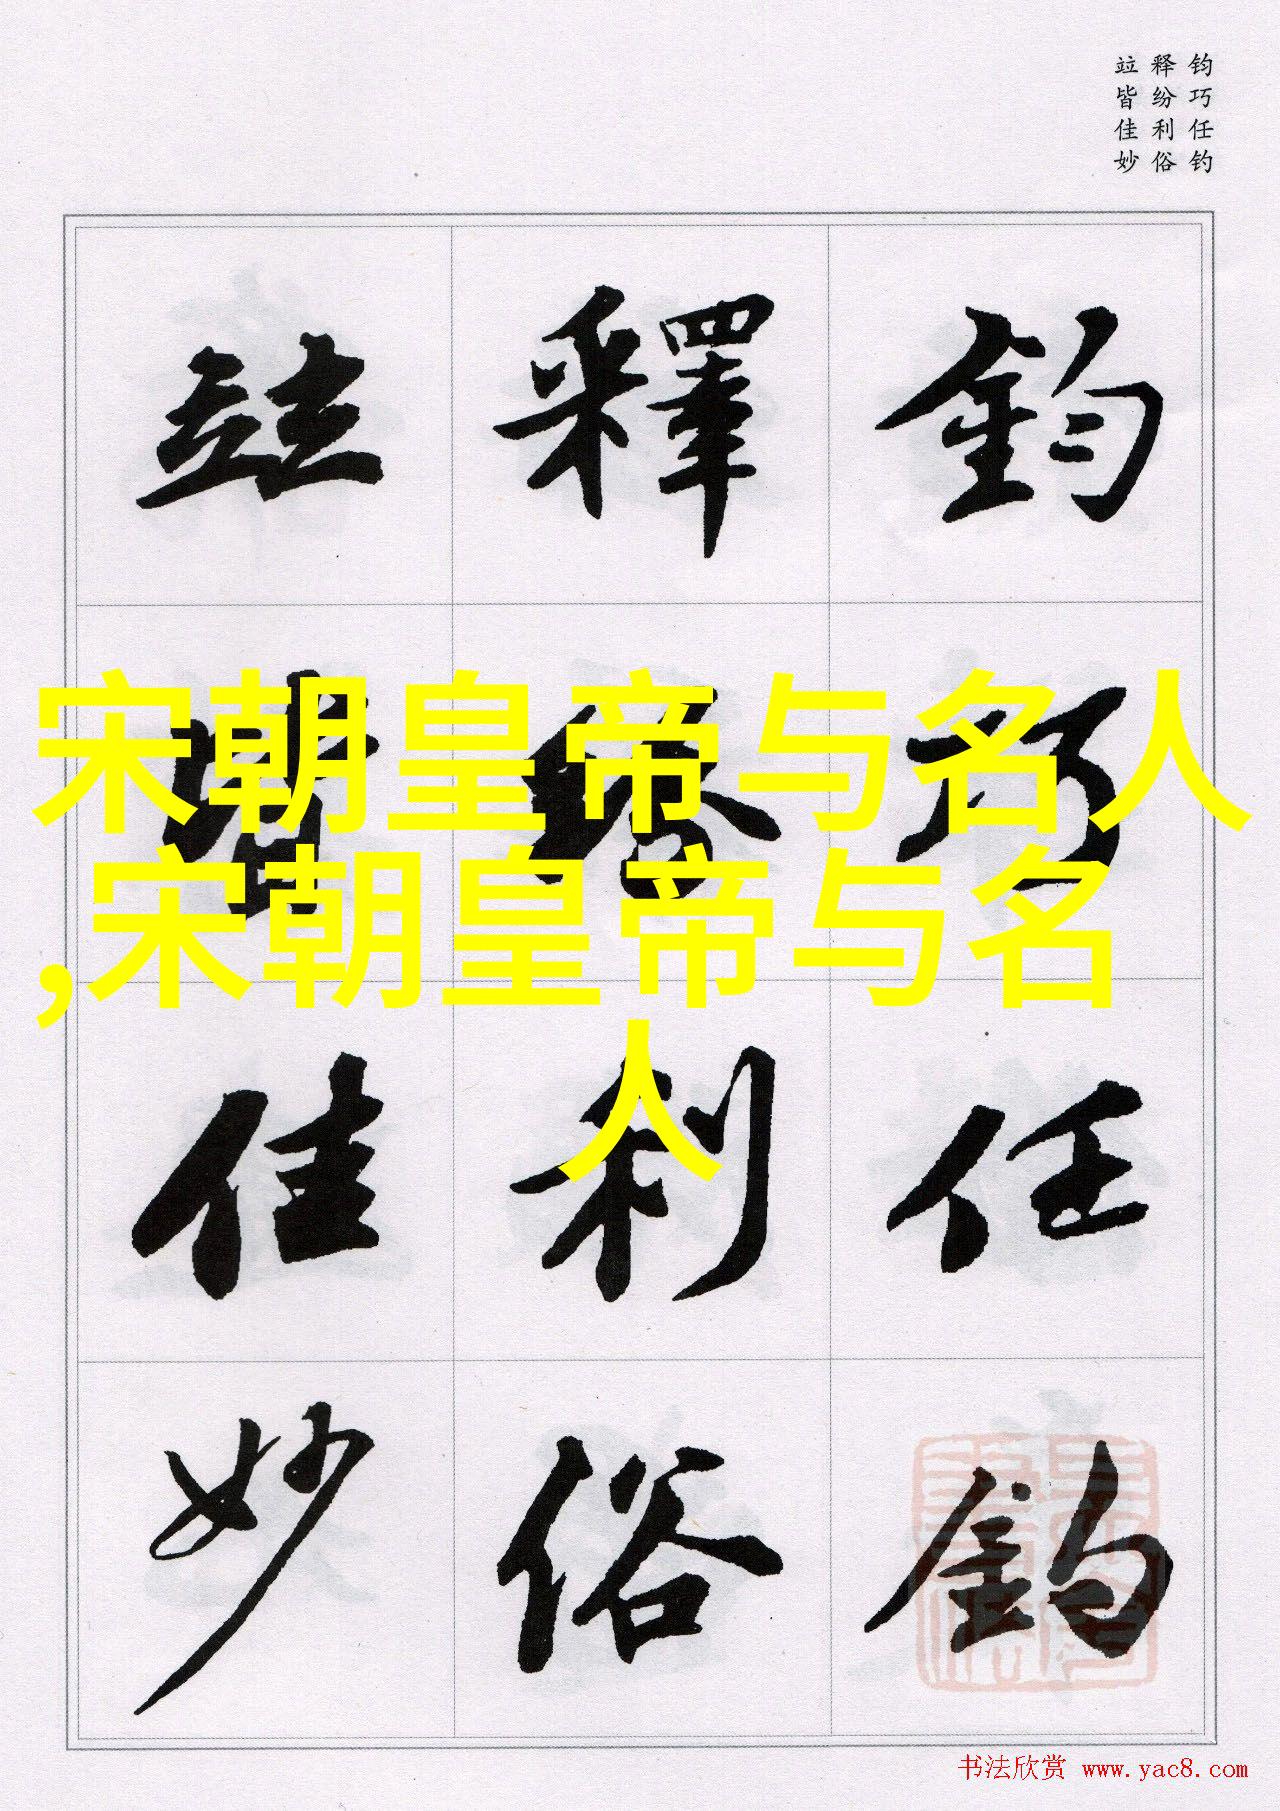 钧巧任钓
释纷利俗
竝皆佳妙
竝 釋 鈞
皆 纷 巧
佳 利 任
妙 俗 鈞
宋朝皇帝与名人
,宋朝皇帝与名
人
书法欣赏 www.yac8.com